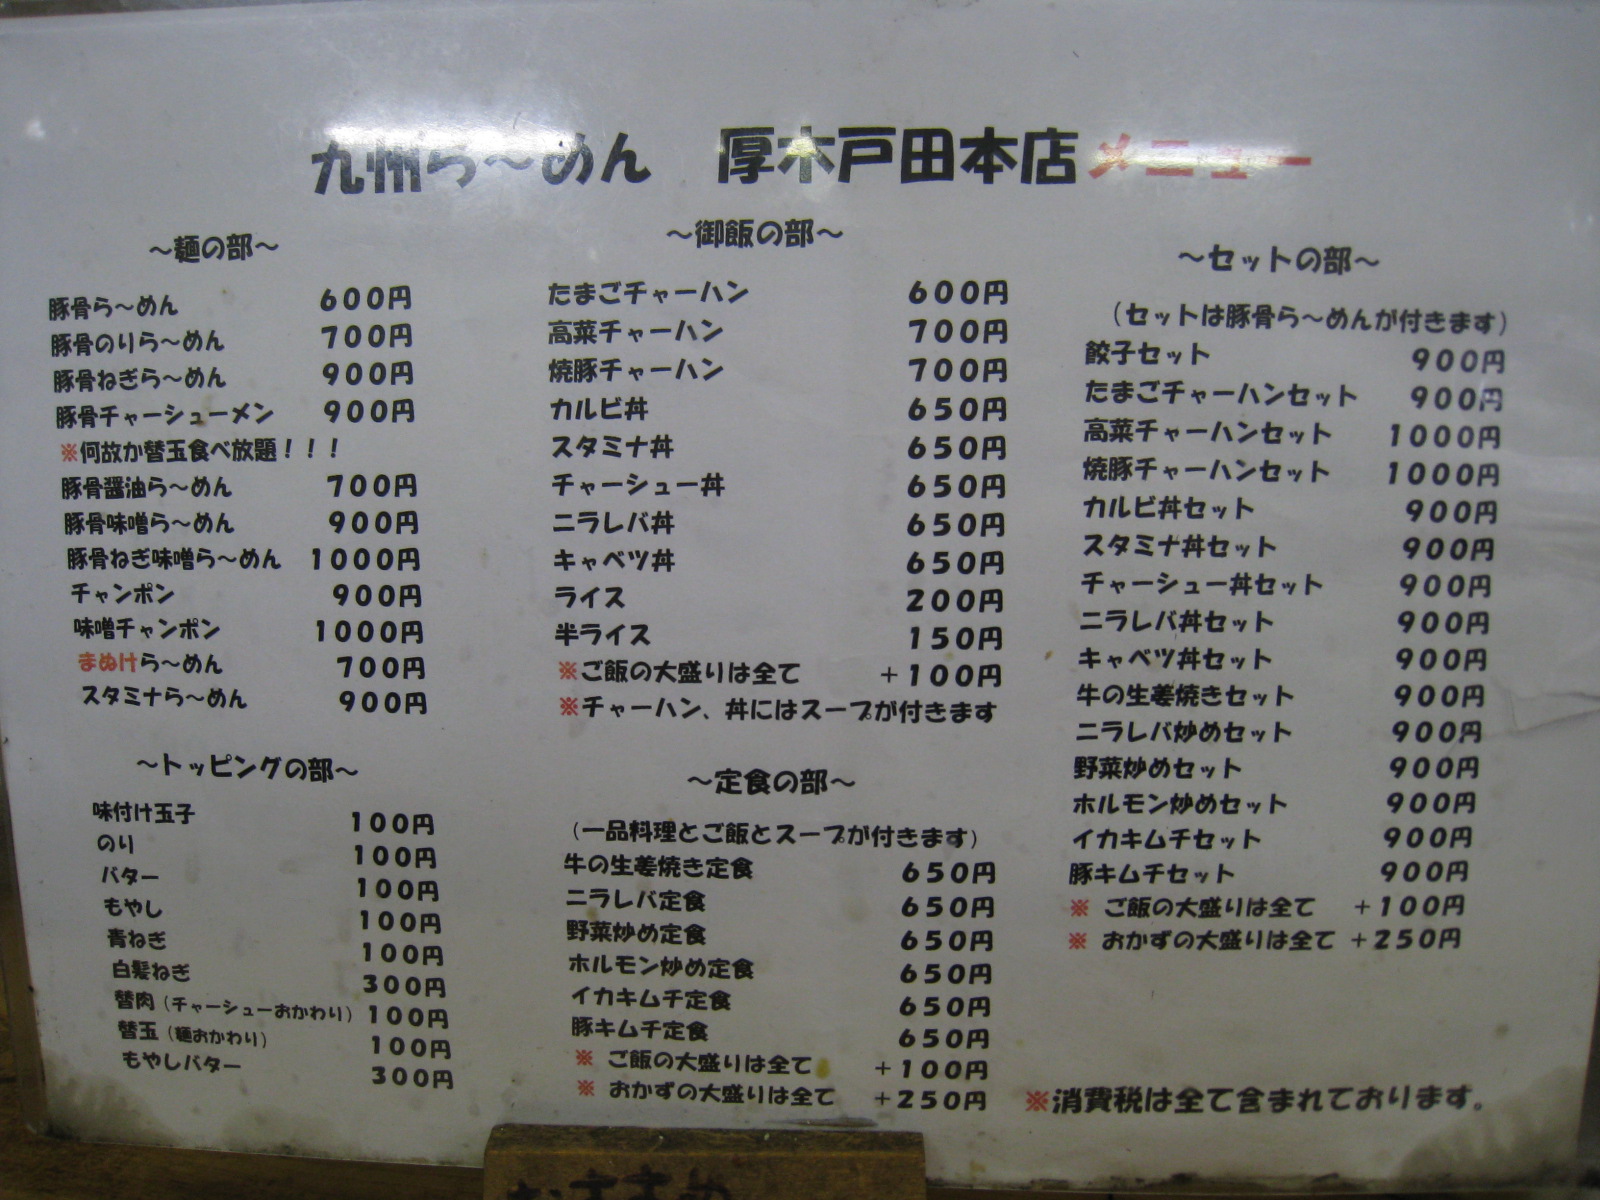 九州ら〜めん　厚木戸田本店メニュー
〜麺の部〜
豚骨ら〜めん 600円
豚骨のりら〜めん 700円
豚骨ねぎら〜めん 900円
豚骨チャーシューメン 900円
※何故か替玉食べ放題！！！
豚骨醤油ら〜めん 700円
豚骨味噌ら〜めん 900円
豚骨ねぎ味噌ら〜めん 1000円
チャンポン 900円
味噌チャンポン 1000円
まぬけら〜めん 700円
スタミナら〜めん 900円
〜トッピングの部〜
味付け玉子 100円
のり 100円
バター 100円
もやし 100円
青ねぎ 100円
白髪ねぎ 300円
替肉（チャーシューおかわり） 100円
替玉（麺おかわり） 100円
もやしバター 300円
〜御飯の部〜
たまごチャーハン 600円
高菜チャーハン 700円
焼豚チャーハン 700円
カルビ丼 650円
スタミナ丼 650円
チャーシュー丼 650円
ニラレバ丼 650円
キャベツ丼 650円
ライス 200円
半ライス 150円
※ご飯の大盛りは全て +100円
※チャーハン、丼にはスープが付きます
〜定食の部〜
（一品料理とご飯とスープが付きます）
牛の生姜焼き定食 650円
ニラレバ定食 650円
野菜炒め定食 650円
ホルモン炒め定食 650円
イカキムチ定食 650円
豚キムチ定食 650円
※ ご飯の大盛りは全て +100円
※ おかずの大盛りは全て +250円
〜セットの部〜
（セットは豚骨ら〜めんが付きます）
餃子セット 900円
たまごチャーハンセット 900円
高菜チャーハンセット 1000円
焼豚チャーハンセット 1000円
カルビ丼セット 900円
スタミナ丼セット 900円
チャーシュー丼セット 900円
ニラレバ丼セット 900円
キャベツ丼セット 900円
牛の生姜焼きセット 900円
ニラレバ炒めセット 900円
野菜炒めセット 900円
ホルモン炒めセット 900円
イカキムチセット 900円
豚キムチセット 900円
※ ご飯の大盛りは全て +100円
※ おかずの大盛りは全て +250円
※消費税は全て含まれております。